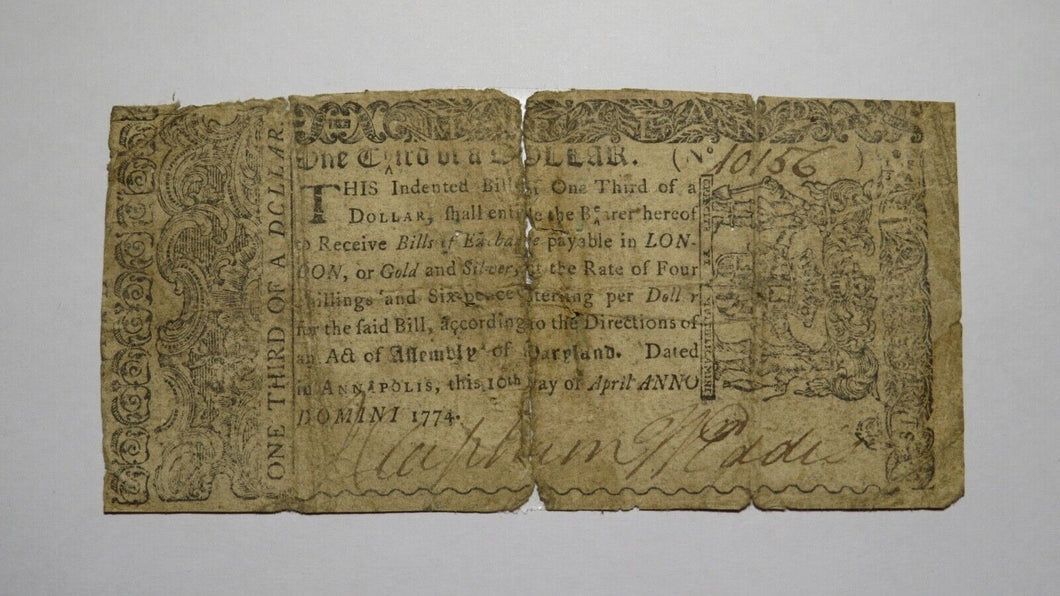 MARYLAND
ONE THIRD OF A DOLLAR
One Third of a DOLLAR. (No 10156)
THIS Indented Bill of One Third of a
DOLLAR, shall entitle the Bearer hereof
to Receive Bills of Exchange payable in LON-
DON, or Gold and Silver, at the Rate of Four
Shillings and Six-pence Sterling per Dollar
for the said Bill, according to the Directions of
an Act of Assembly of Maryland. Dated
in ANNAPOLIS, this 10th Day of April ANNO
DOMINI 1774.
J Clapham Wm Eddis